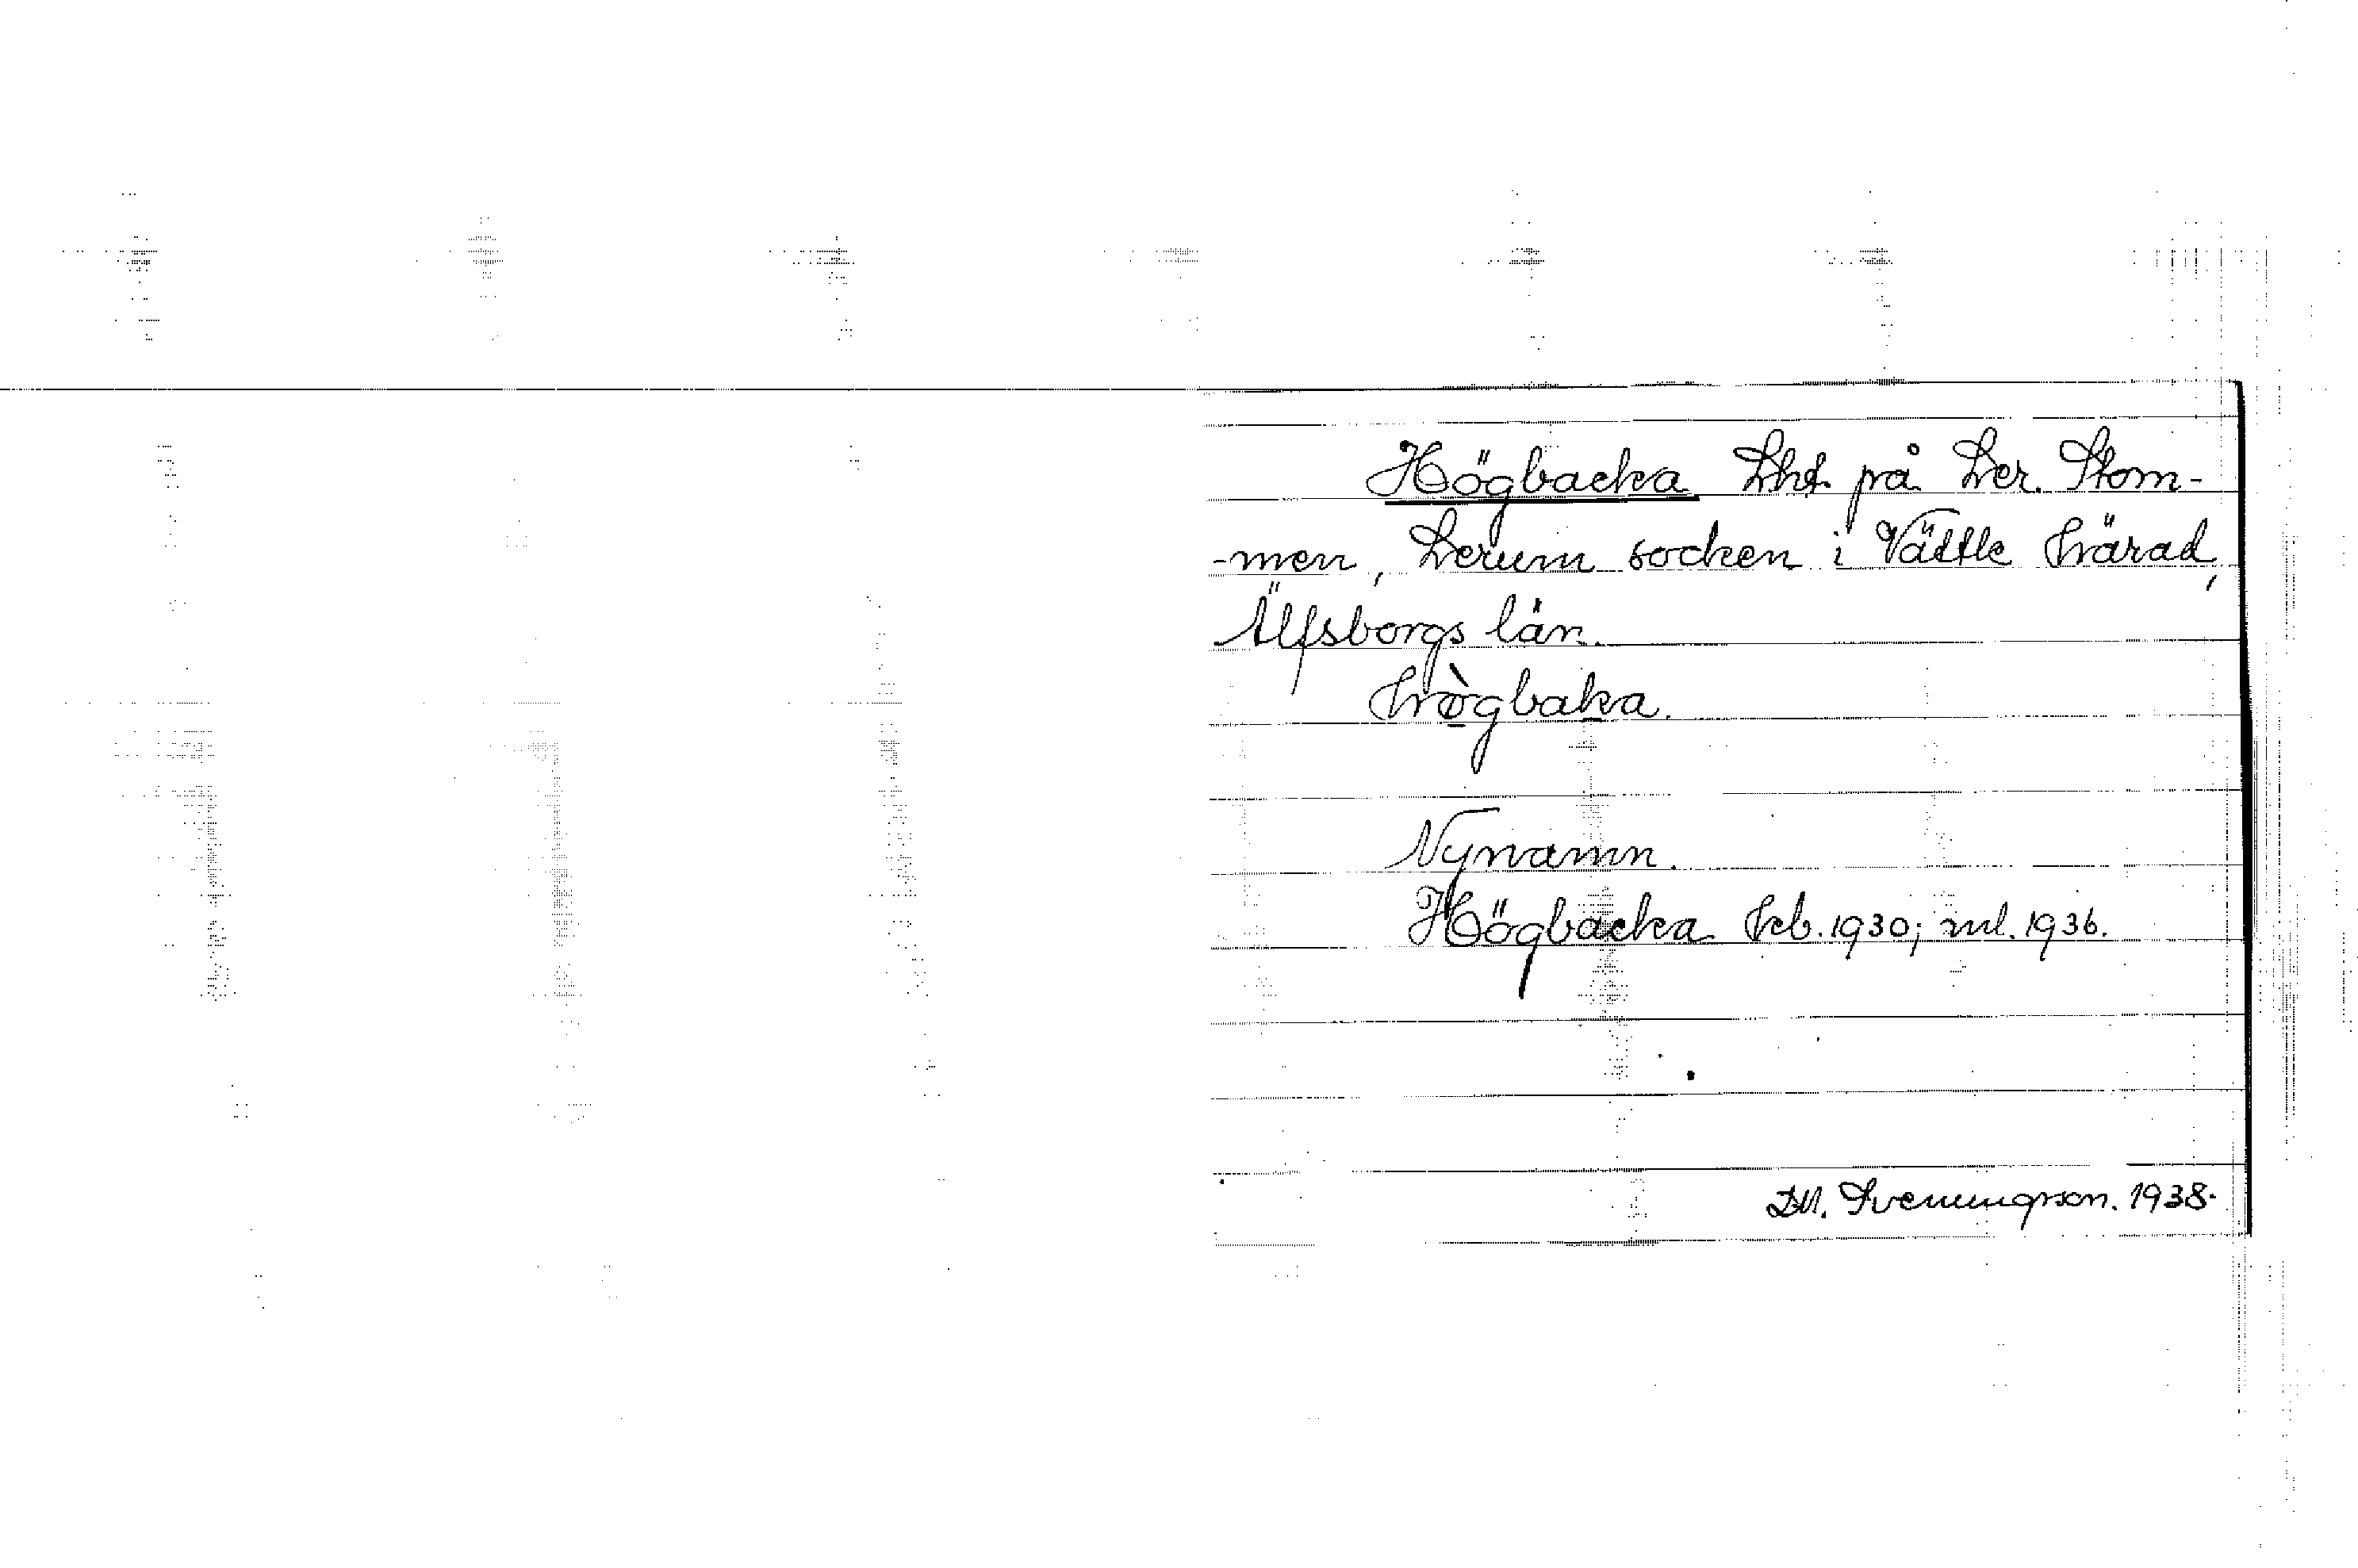 Högbacka Lht på Ler. Stom-
-men, Lerum socken i Vättle härad,
Älfsborgs län.
hø̀gbaka.
Nynamn.
Högbacka Fcb. 1930; ml. 1936.
Sveningson. 1938.